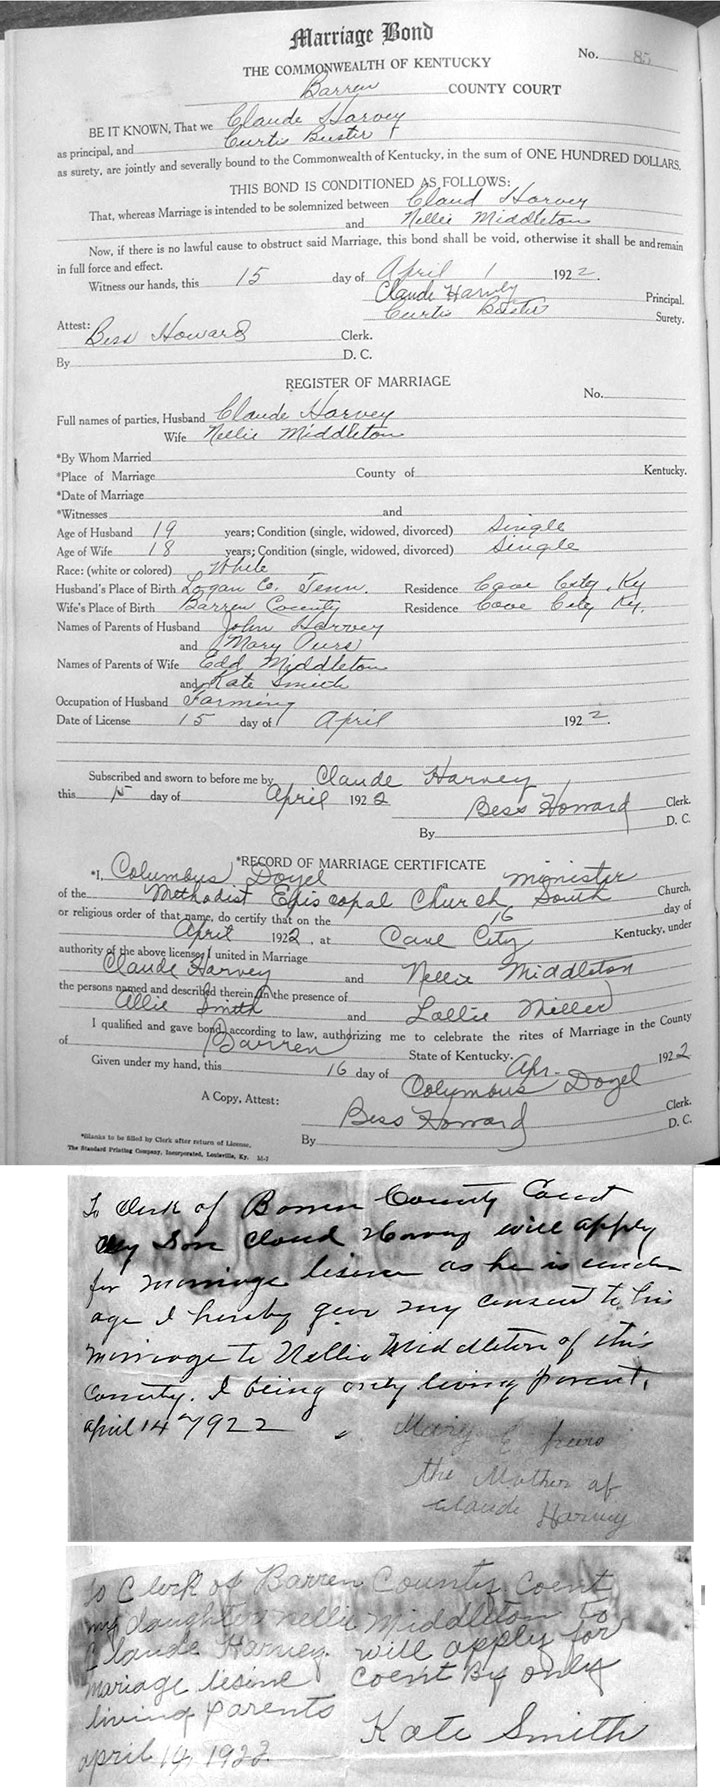 Marriage Bond
No. 85
THE COMMONWEALTH OF KENTUCKY
Barren COUNTY COURT
BE IT KNOWN, That we Claude Harvey
as principal, and Curtis Buster
as surety, are jointly and severally bound to the Commonwealth of Kentucky, in the sum of ONE HUNDRED DOLLARS.
THIS BOND IS CONDITIONED AS FOLLOWS:
That, whereas Marriage is intended to be solemnized between Claud Harvey
and Nellie Middleton
Now, if there is no lawful cause to obstruct said Marriage, this bond shall be void, otherwise it shall be and remain
in full force and effect.
Witness our hands, this 15 day of April 1 1922.
Claude Harvey Principal.
Curtis Buster Surety.
Attest:
Bess Howard Clerk.
By D. C.
REGISTER OF MARRIAGE
No.
Full names of parties, Husband Claude Harvey
Wife Nellie Middleton
*By Whom Married
*Place of Marriage County of Kentucky.
*Date of Marriage
*Witnesses and
Age of Husband 19 years; Condition (single, widowed, divorced) Single
Age of Wife 18 years; Condition (single, widowed, divorced) Single
Race: (white or colored) White
Husband's Place of Birth Logan Co. Tenn. Residence Cave City, Ky
Wife's Place of Birth Barren County Residence Cave City Ky.
Names of Parents of Husband John Harvey
and Mary
Names of Parents of Wife Edd Middleton
and Kate Smith
Occupation of Husband Farming
Date of License 15 day of April 1922.
Subscribed and sworn to before me by Claude Harvey
this 15 day of April 1922 Bess Howard Clerk.
By D. C.
*RECORD OF MARRIAGE CERTIFICATE
*I, Columbus Doyel minister
of the Methodist Episcopal Church South Church,
or religious order of that name, do certify that on the 16 day of
April 1922, at Cave City Kentucky, under
authority of the above license, I united in Marriage
Claude Harvey and Nellie Middleton
the persons named and described therein, in the presence of
Allie Smith and Lollie Miller
I qualified and gave bond, according to law, authorizing me to celebrate the rites of Marriage in the County
of Barren State of Kentucky.
Given under my hand, this 16 day of Apr. 1922
Columbus Doyel
A Copy, Attest: Bess Howard Clerk.
By D. C.
*Blanks to be filled by Clerk after return of License.
The Standard Printing Company, Incorporated, Louisville, Ky. M-7
To Clerk of Barren County Court
My Son Cloud Harvey will apply
for marriage lisince as he is under
age I hereby give my consent to his
marriage to Nellie Middleton of this
County. I being only living parent,
april 14 1922 Mary E
the Mother of
Claude Harvey
To Clerk of Barren County Coent
my daughter nellie Middleton to
Claude Harvey will apply for
mariage lisine coent By only
living parents
Kate Smith
april 14, 1922